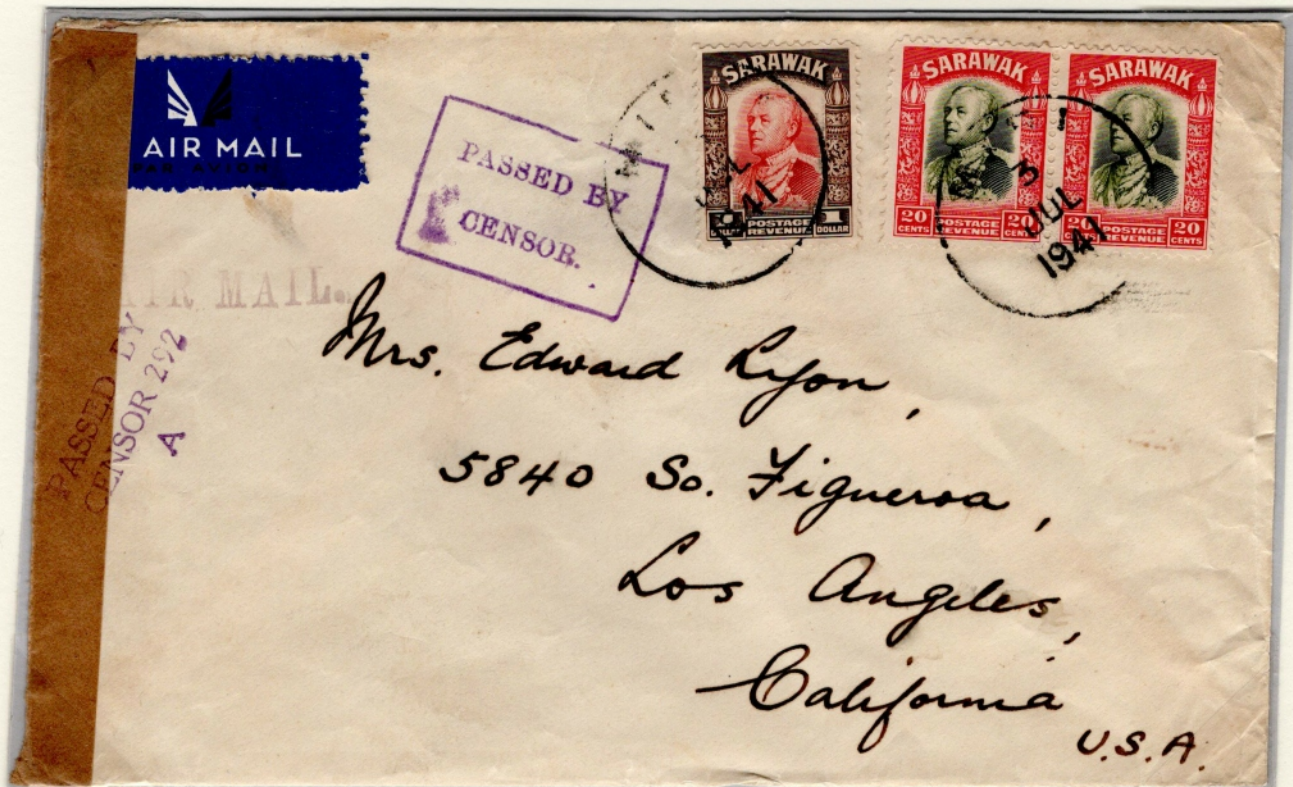 AIR MAIL
PAR AVION
PASSED BY
CENSOR.
SARAWAK
1 DOLLAR
POSTAGE
REVENUE
1 DOLLAR
JUL
1941
SARAWAK
20 CENTS
POSTAGE
REVENUE
20 CENTS
SARAWAK
20
POSTAGE
REVENUE
20 CENTS
3
JUL
1941
AIR MAIL.
PASSED BY
CENSOR 292
A
Mrs. Edward Lyon,
5840 So. Figueroa,
Los Angeles,
California
U.S.A.